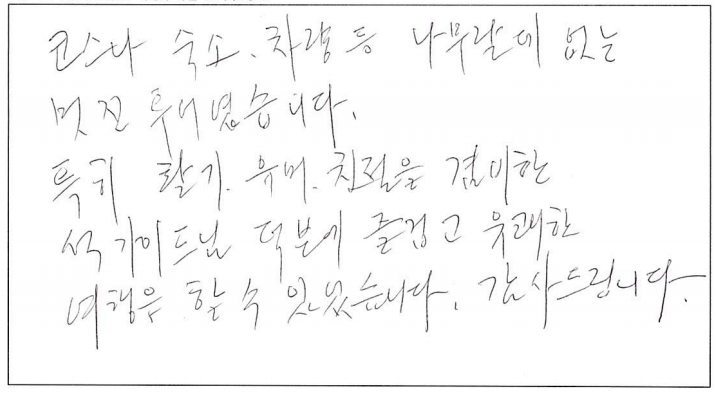 코스나 숙소、차량 등 나무랄데 없는
멋진 투어였습니다.
특히 활기、유머、친절을 겸비한
석가이드님 덕분에 즐겁고 유쾌한
여행을 할 수 있었습니다. 감사드립니다.